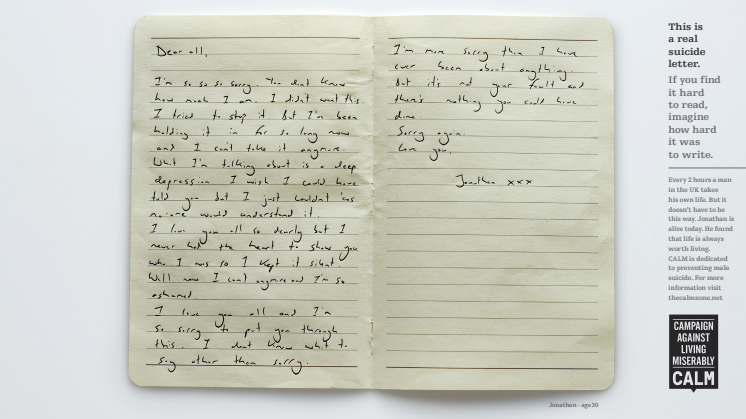 Dear all,
I'm so so so sorry. You dont know
how much I am. I didnt want this.
I tried to stop it But I'm been
holding it in for so long now
and I can't take it anymore.
What I'm talking about is a deep
depression. I wish I could have
told you but I just couldn't 'cos
no-one would understand it.
I love you all so dearly but I
never had the heart to show you
who I was so I kept it silent.
Well now I can't anymore and I'm so
ashamed.
I love you all and I'm
so sorry to put you through
this. I dont know what to
say other than sorry.
I'm more sorry than I have
ever been about anything.
But it's not your fault and
there's nothing you could have
done.
Sorry again.
Love you,
Jonathan xxx
This is
a real
suicide
letter.
If you find
it hard
to read,
imagine
how hard
it was
to write.
Every 2 hours a man
in the UK takes
his own life. But it
doesn't have to be
this way. Jonathan is
alive today. He found
that life is always
worth living.
CALM is dedicated
to preventing male
suicide. For more
information visit
thecalmzone.net
CAMPAIGN
AGAINST
LIVING
MISERABLY
CALM
Jonathan - age 20